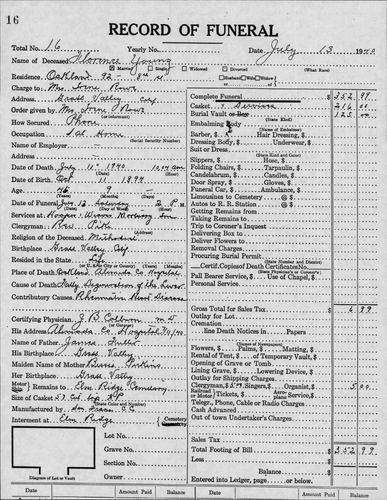 16
RECORD OF FUNERAL
Total No. 16 Yearly No. Date July 13 1940
Name of Deceased Florence Young
Married Single Widowed Divorced (What Race)
Residence Oakland 92 - 8th st Husband Wife
Charge to Mrs Irene Rowe
Address Grass Valley Cal
Order given by Mrs Irene Rowe
How Secured Phone
Occupation At Home (Social Security Number)
Name of Employer
Date of Death July 11th 1940 10:14 am
Date of Birth Oct 11 1893
Age 46 (Years) 9 (Months) (Days)
Date of Funeral July 13 Saturday 2 P.M.
Services at Hooper Weaver
Clergyman Rev
Religion of the Deceased Methodist
Birthplace Grass Valley Cal
Resided in the State Life
Place of Death Oakland Alameda Co Hospital
Cause of Death Fatty degeneration of the liver
Contributory Causes Rheumatic Heart disease
Certifying Physician J B M D
His Address Alameda Co Hospital
Name of Father James
His Birthplace Grass Valley
Maiden Name of Mother Bessie
Her Birthplace Grass Valley
Motor Ship Remains to Elm Ridge Cemetery
Size of Casket
Manufactured by
Interment at Elm Ridge Cemetery
Lot No.
Grave No.
Section No.
Owner
Diagram of Lot or Vault
Complete Funeral $ 352 99
Casket & Services 216 00
Burial Vault or Box 125 00
(State Kind)
Embalming Body
(Name of Embalmer)
Barber, $ Hair Dressing, $
Dressing Body, $ Underwear, $
Suit or Dress
(State Kind and Color)
Slippers, $ Hose, $
Folding Chairs, $ Tarpaulin, $
Candelabrum, $ Candles, $
Door Spray, $ Gloves, $
Funeral Car, $ Ambulance, $
Limousines to Cemetery @ $
Autos to R. R. Station @ $
Getting Remains from
Taking Remains to
Trip to Coroner's Inquest
Delivering Box to
Deliver Flowers to
Removal Charges
Procuring Burial Permit
(State Number and District)
Certif. Copies of Death Certificates No.
(State Physician's or Coroner's)
Pall Bearer Service, $ Use of Chapel, $
Personal Service
Gross Total for Sales Tax $ 6 99
Outlay for Lot
Cremation
line Death Notices in Papers
(Names of Newspapers)
Flowers, $ Palms, $ Matting, $
Rental of Tent, $ of Temporary Vault, $
Opening of Grave or Tomb
Lining Grave, $ Lowering Device, $
Outlay for Shipping Charges
Clergyman, $ 5.00 Singers, $ Organist, $ 5 00
Railroad Motor Tickets, $ Aero-plane Service, $
Telegr., Phone, Cable or Radio Charges
Cash Advanced
Out of town Undertaker's Charges
Sales Tax
Total Footing of Bill $ 352 99
Entered into Ledger, page or below.
Date Paid Balance Date Paid Balance